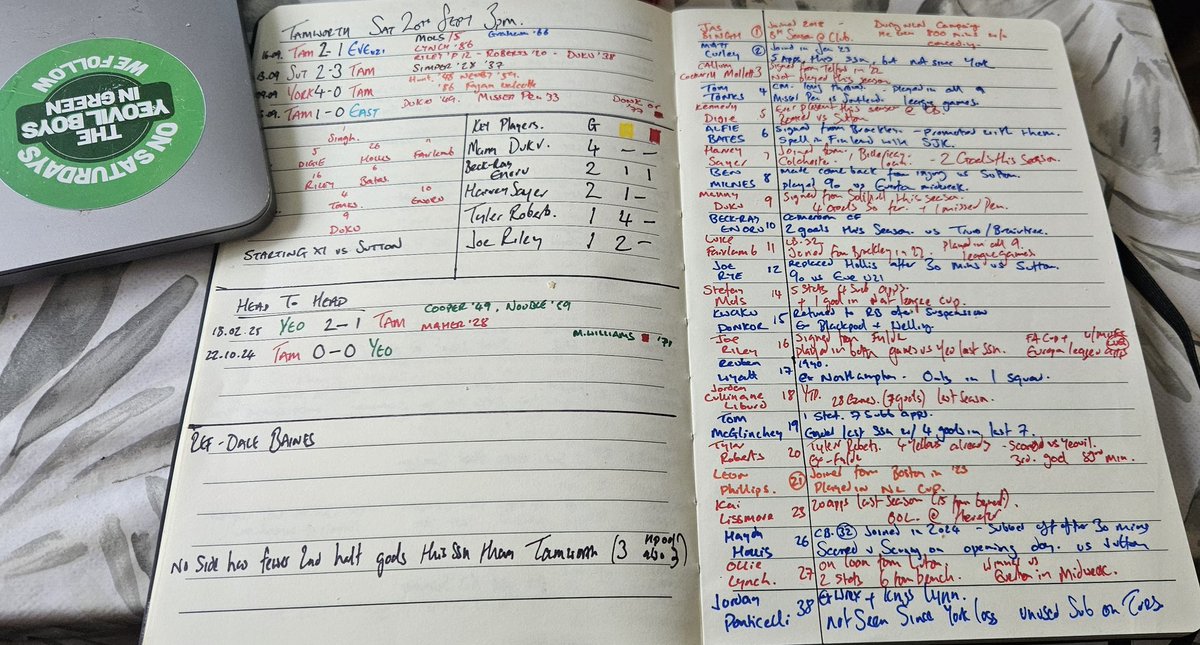 ON SATURDAYS
WE FOLLOW
THE
YEOVIL BOYS
IN GREEN
TAMWORTH SAT 20TH SEPT 3pm.
16.09. TAM 2-1 EVE U21 MOLS /5 Graham '66
LYNCH '86
13.09 SUT 2-3 TAM RILEY P 12 - ROBERTS '20 - DUKU '38
SIMPER '28 '37
YORK 4-0 TAM Hunt. '48
'86
TAM 1-0 EAST DUKU '49. MISSED PEN '33
Singh.
5 26
DIGIE HOLLIS Fairlamb
16 6
RILEY Bates.
4 10
TONKS. ENORU
9
DUKU
STARTING XI VS SUTTON
KEY PLAYERS. G
Manny DUKU 4 - -
Beck-Ray Enoru 2 1 1
Harvey Sayer 2 1 -
Tyler Roberts. 1 4 -
Joe Riley 1 2 -
HEAD TO HEAD
18.02.25 YEO 2-1 TAM COOPER '49, NOUBLE '69
MAHER '28
22.10.24 TAM 0-0 YEO M.WILLIAMS '71
REF - DALE BAINES
No side has fewer 2nd half goals this ssn than Tamworth (3 also 3)
JAS SINGH 1 Joined 2018 - During NLN Campaign
8th Season @ Club. He ben 800 mins w/o conceding.
MATT Curley 2 Joined in Jan 23
5 Apps this ssn, but not since York
CALLUM Cockerill Mollett 3 Signed from Telford in 22
Not played this season.
Tom TONKS 4 CM. long throws. - Played in all 9
Missed Pen vs league games.
Kennedy Digie 5 Ever present this season @ CB.
Scored vs Sutton
ALFIE BATES 6 Signed from Brackley - Promoted with them.
Spell in Finland with SJK.
Harvey Sayer 7 Joined from Billericay
Colchester. - 2 Goals this season.
BEN MILNES 8 made come back from injury vs Sutton.
played 90 vs Everton midweek.
Manny DUKU 9 Signed from Solihull this season.
4 goals so far. + 1 missed Pen.
BECK-RAY ENORU 10 Cameroon CF
2 goals this season. vs Truro / Braintree.
Luke Fairlamb 11 Joined from Brackley in 22 Played in all 9 league games.
Joe RYE 12 Replaced Hollis after 30 mins vs Sutton.
90 vs Eve U21
Stefan Mols 14 5 Starts 4 Sub apps.
+ 1 goal in Nat League Cup.
KWAKU DONKOR 15 Returned to RB after Suspension
Ex Blackpool + Welling.
Joe Riley 16 Signed from Fylde
played in both games vs Yeo last ssn. FA Cup + w/ MUFC
Europa League apps
Reuben Wyatt 17
Ex Northampton - Only in 1 squad.
Jordan Cullinane Liburd 18 28 Games. (7 goals) last season.
Tom McGlinchey 19 1 Start. 7 Subs apps.
Ended last ssn w/ 4 goals in last 7.
Tyler Roberts 20 Tyler Roberts. 4 Yellows already - Scored vs Yeovil.
Ex-Fylde 3rd goal 83rd min.
Leon Phillips. 21 Joined from Boston in '23
Played in NL Cup.
Kai Lissimore 23 20 apps last season (15 from bench).
GOL @ Hereford
Haydn Hollis 26 CB. 32 Joined in 2024 - Subbed off after 30 mins
Scored v Scunny on opening day. vs Sutton
Ollie Lynch. 27 on loan from Luton Winner vs
2 starts 6 from bench. Everton in Midweek.
Jordan Ponticelli 38 Ex Wrex + Kings Lynn.
not seen since York loss unused sub on Tues